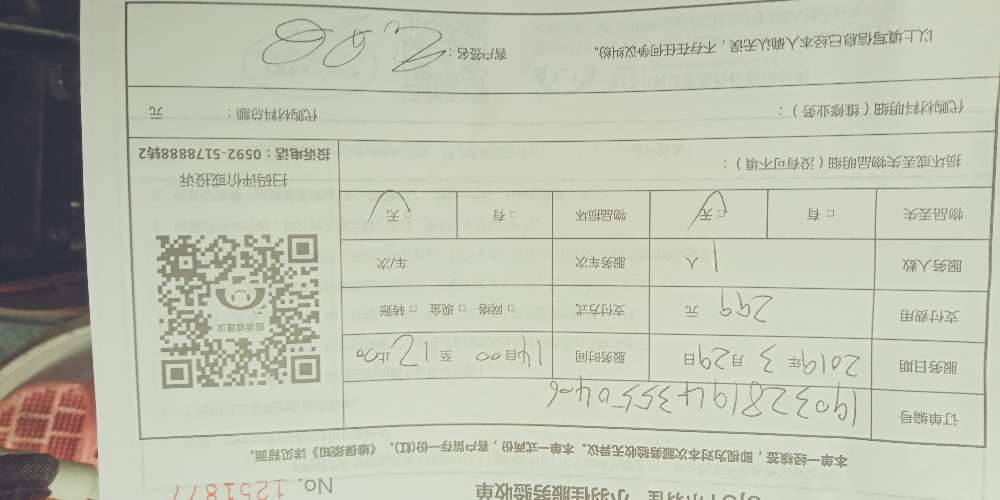 小羽佳服务验收单
No. 1251877
本单一经签签，即视为对本次服务验收无异议。本单一式两份，客户留存一份(红)。《维保须知》详见背面。
订单编号
服务日期 2019年 3 月29日 服务时间 14自00 至 17止00
支付费用 299 元 支付方式 □ 网络 □ 现金 □ 转账
服务人数 1 人 服务车次 车/次
物品丢失 □ 有 □ 无 物品损坏 □ 有 □ 无
投诉或建议
损坏或丢失物品明细（没有可不填）：
扫码评价或投诉
投诉电话：0592-5178888转2
代购材料明细（维修业务）： 代购材料总额： 元
以上填写信息已经本人确认无误，不存在任何争议纠纷。 客户签名：